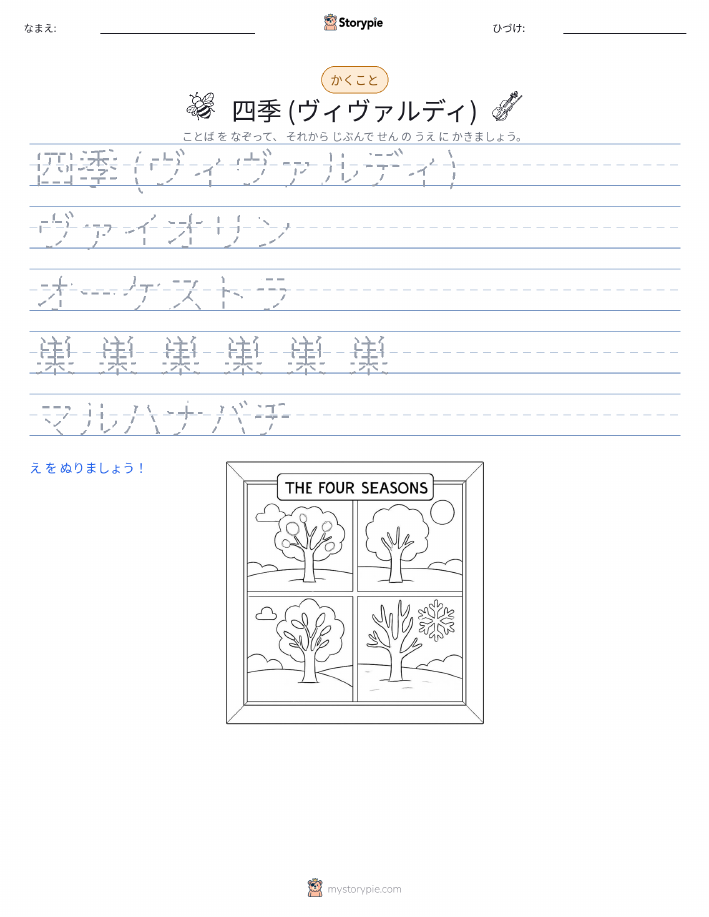 なまえ:
Storypie
ひづけ:
かくこと
四季 (ヴィヴァルディ)
ことば を なぞって、 それから じぶんで せん の うえ に かきましょう。
四季 (ヴィヴァルディ)
ヴァイオリン
オーケストラ
巣 巣 巣 巣 巣 巣
マルハナバチ
え を ぬりましょう！
THE FOUR SEASONS
mystorypie.com